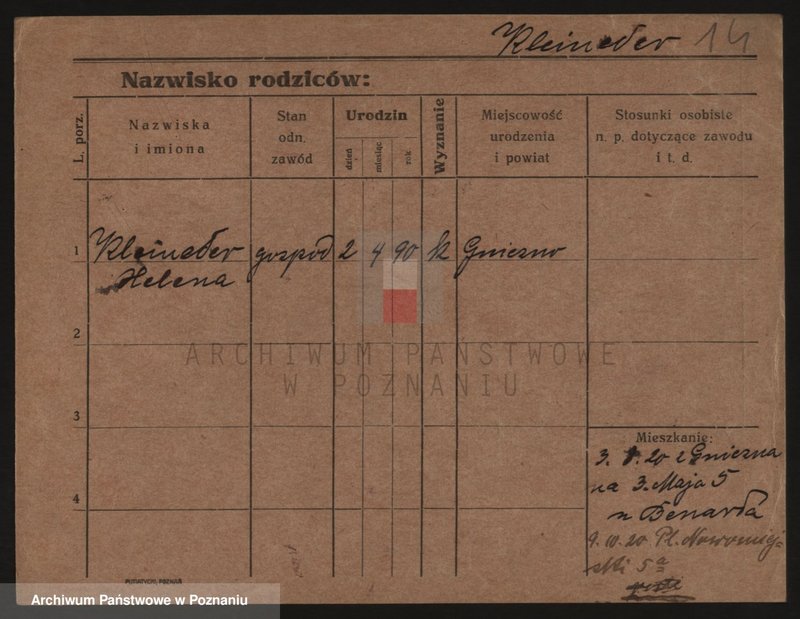 Kleineder 14
Nazwisko rodziców:
L. porz.
Nazwiska
i imiona
Stan
odn.
zawód
Urodzin
dzień
miesiąc
rok
Wyznanie
Miejscowość
urodzenia
i powiat
Stosunki osobiste
n. p. dotyczące zawodu
i t. d.
1 Kleineder gospod 2 4 90 k Gniezno
Helena
2
ARCHIWUM PAŃSTWOWE
W POZNANIU
3
Mieszkanie:
3. 8. 20 z Gniezna
na 3. Maja 5
u Benarda
4
9. 10. 20 Pl. Nowomiej-
ski 5a
PUTIATYCKI, POZNAŃ
Archiwum Państwowe w Poznaniu